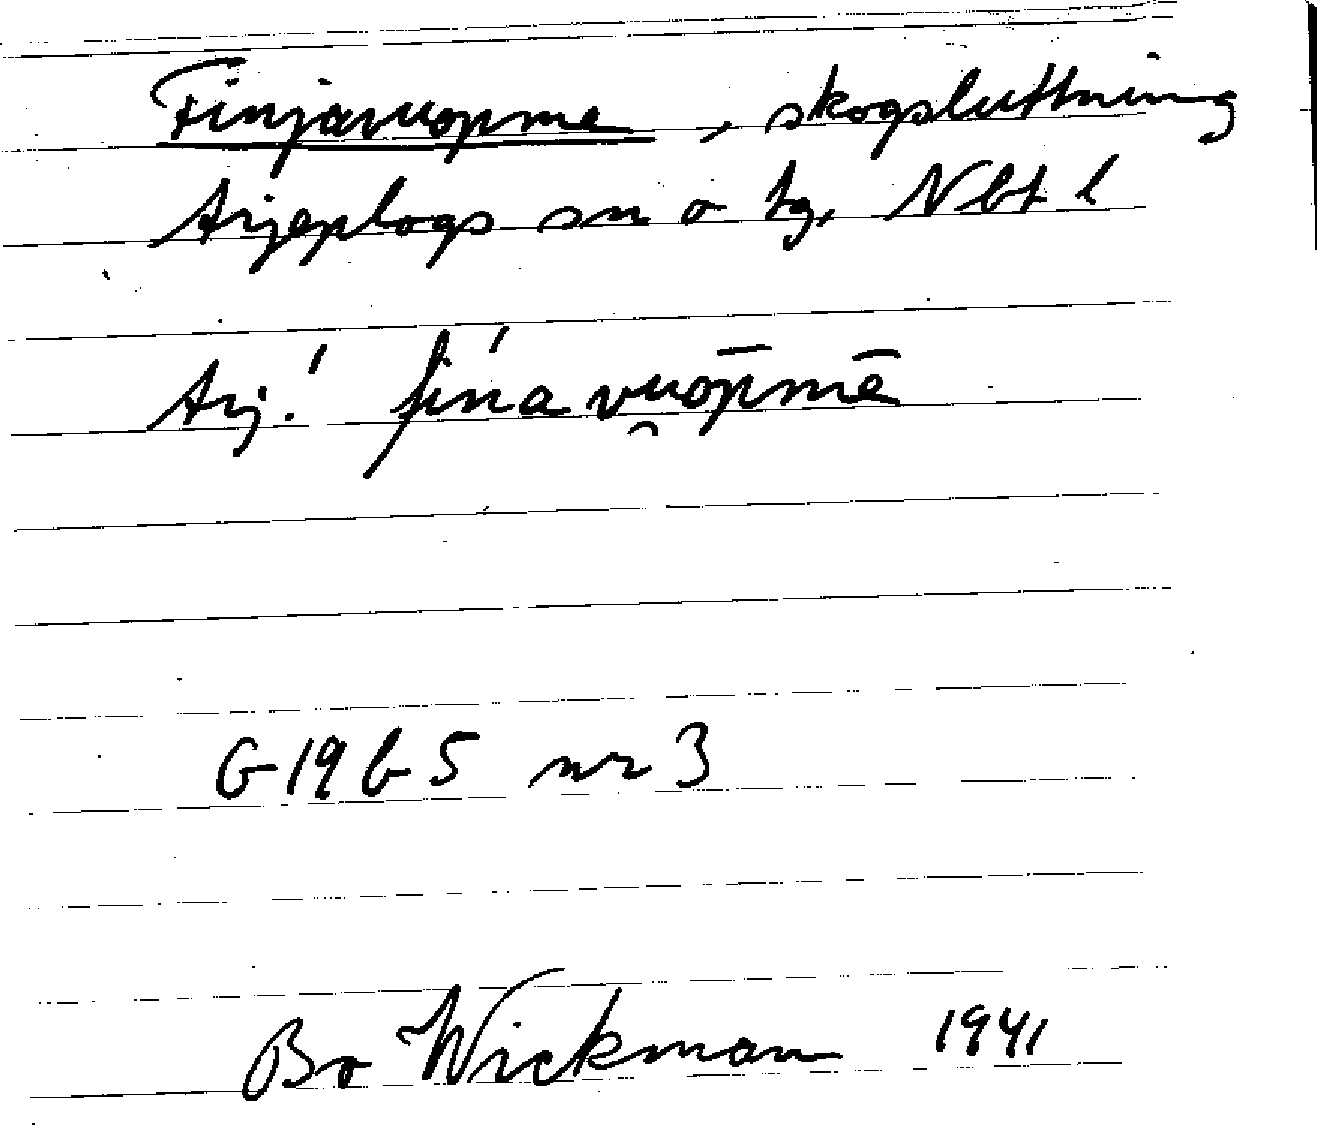 Finjavuopme, skogsluttning
Arjeplogs sn o tg, Nbt l
Arj.! fińavu̯op̄mē
G 19 b 5 nr 3
Bo Wickman 1941